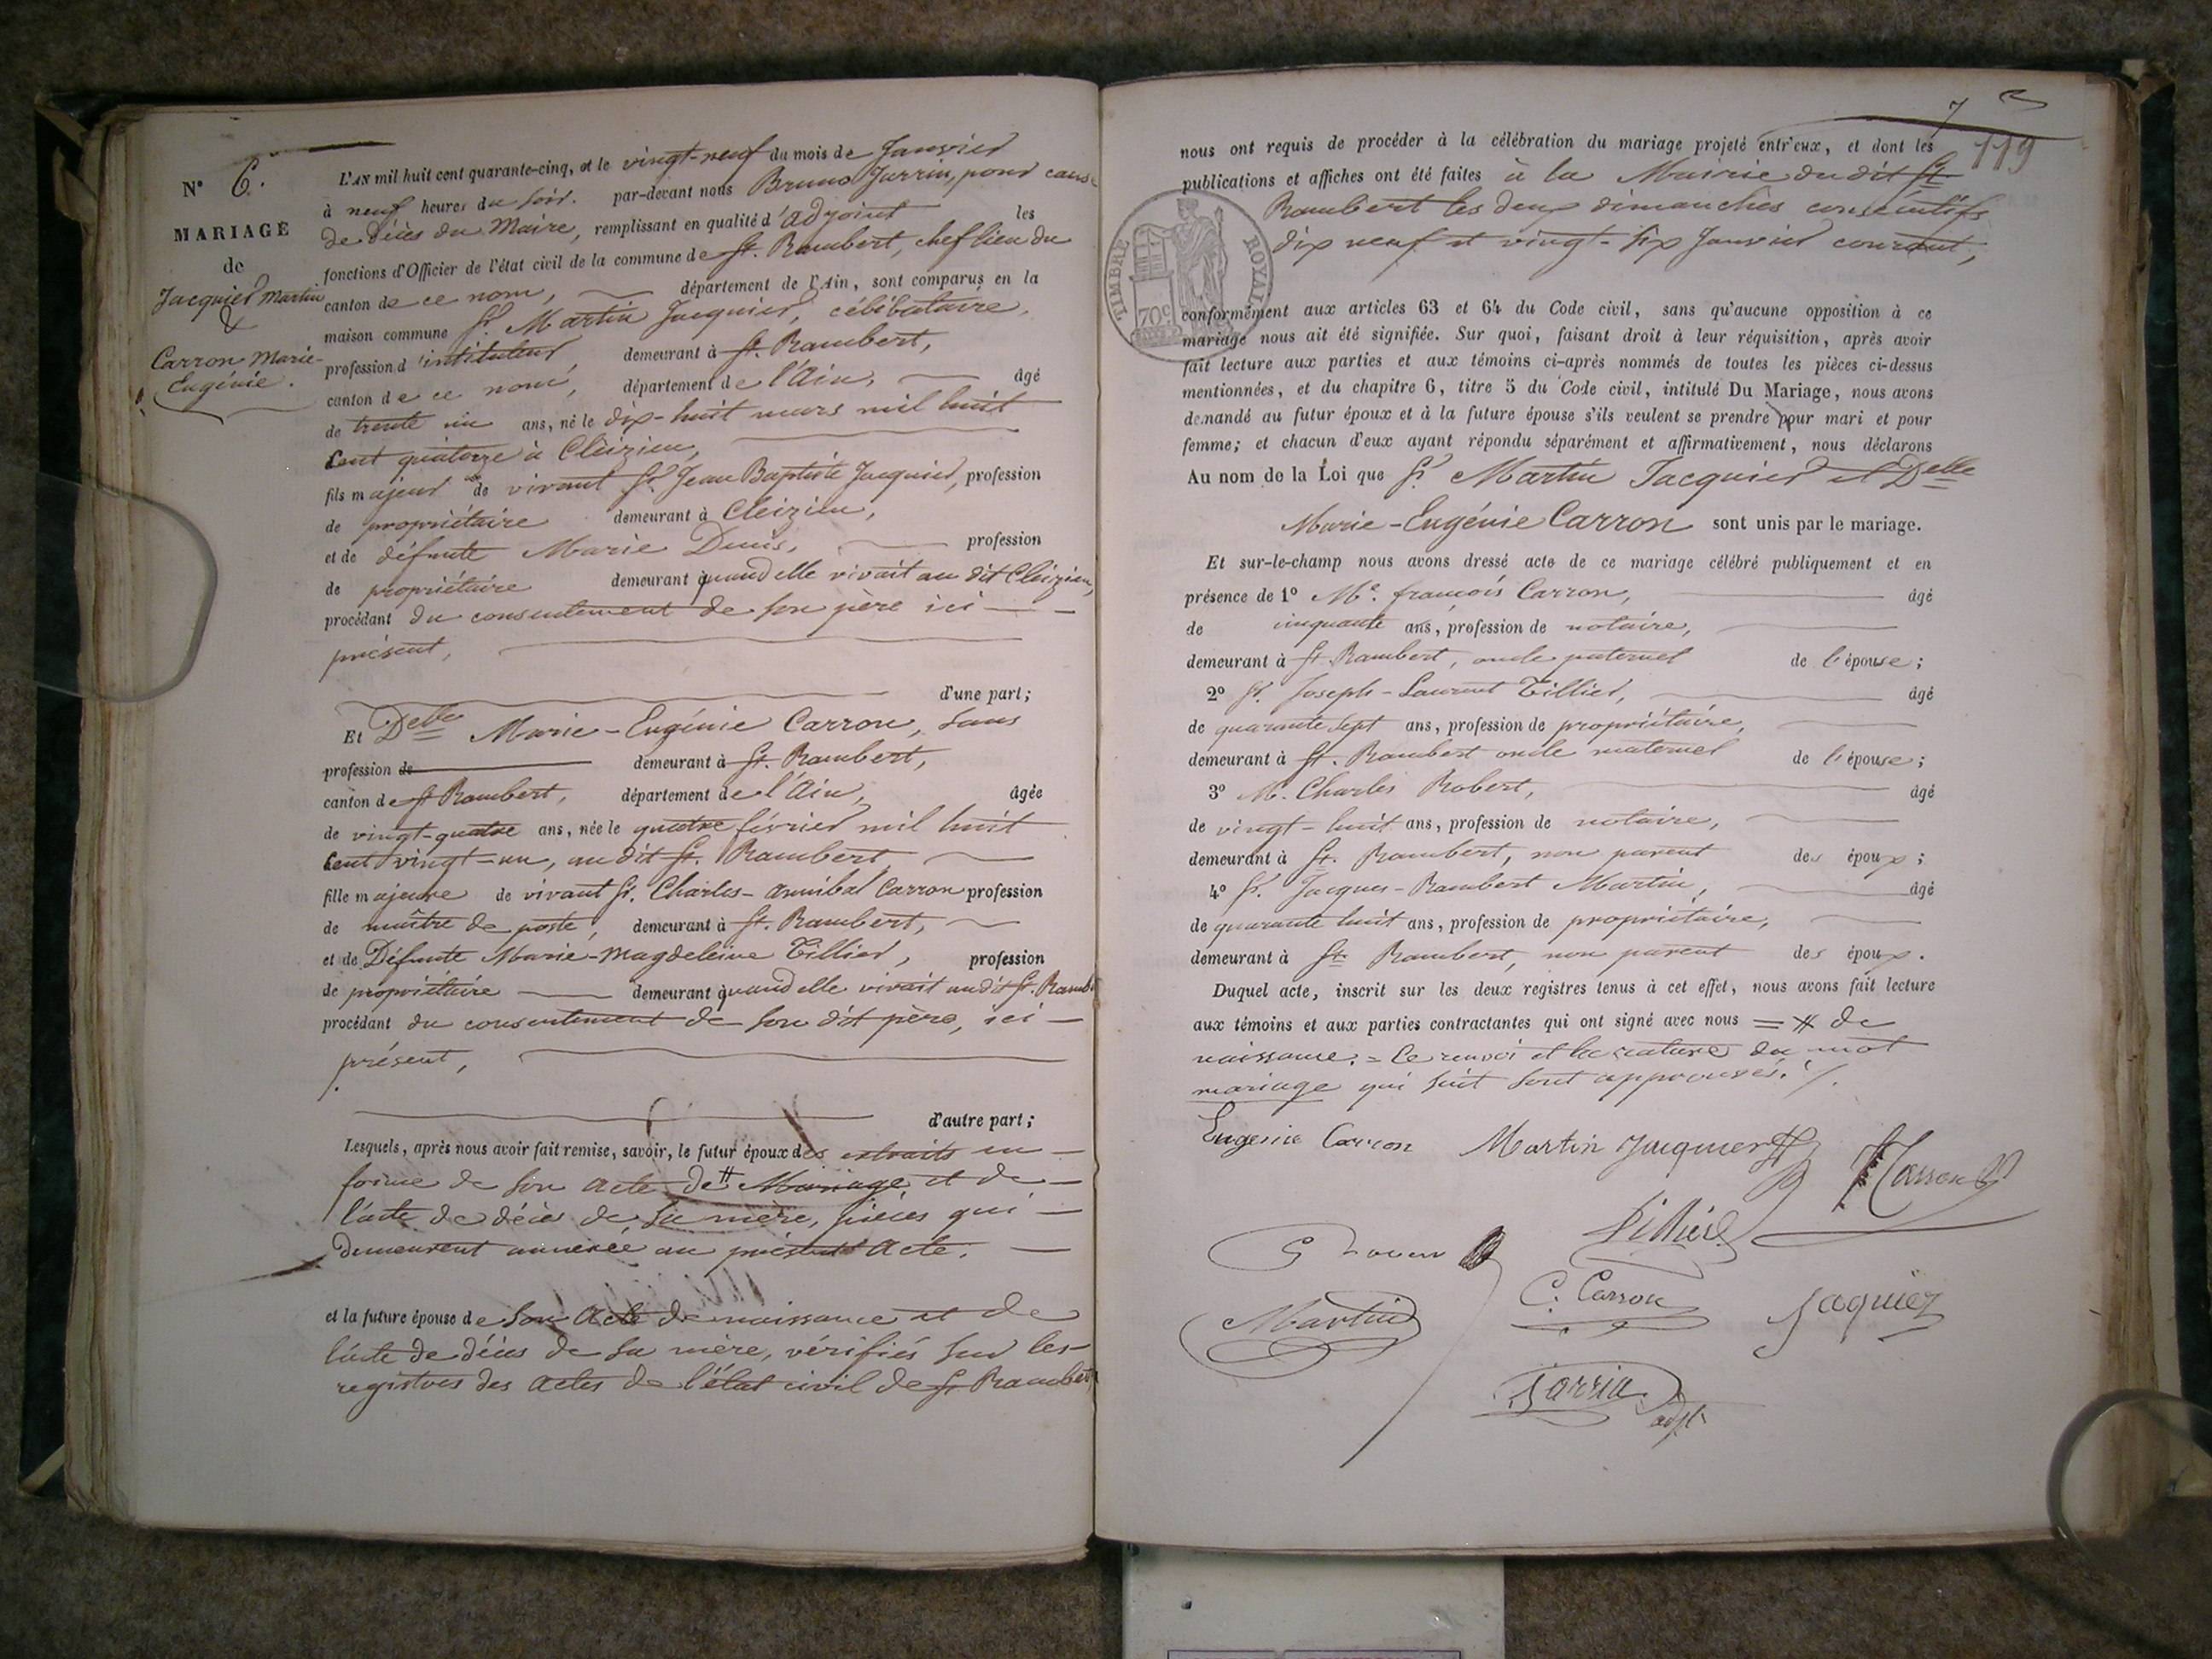 N° 6.
MARIAGE
de
Jacquier Martin
&
Carron Marie-
Eugénie.
L'AN mil huit cent quarante-cinq, et le vingt-neuf du mois de Janvier
à neuf heures du soir. par-devant nous Bruno Jarrin, pour cause
de décès du Maire, remplissant en qualité d'adjoint les
fonctions d'Officier de l'état civil de la commune de St. Rambert, chef lieu du
canton de ce nom, département de l'Ain, sont comparus en la
maison commune Sr. Martin Jacquier, célibataire,
profession d'instituteur, demeurant à St. Rambert,
canton de ce nom, département de l'Ain, âgé
de trente un ans, né le dix-huit mars mil huit
cent quatorze à Cleizieu,
fils majeur de vivant Sr. Jean Baptiste Jacquier, profession
de propriétaire demeurant à Cleizieu,
et de défunte Marie Denis, profession
de propriétaire demeurant quand elle vivait au dit Cleizieu,
procédant du consentement de son père ici
présent,
d'une part;
Et Delle Marie-Eugénie Carron, sans
profession de demeurant à St. Rambert,
canton de St Rambert, département de l'Ain, âgée
de vingt-quatre ans, née le quatre février mil huit
cent vingt-un, au dit St. Rambert
fille majeure de vivant Sr. Charles-annibal Carron profession
de maître de poste, demeurant à St. Rambert,
et de Défunte Marie-Magdeleine Tillier, profession
de propriétaire demeurant quand elle vivait au dit St. Rambert
procédant du consentement de son dit père, ici
présent,
d'autre part;
Lesquels, après nous avoir fait remise, savoir, le futur époux des extraits en
forme de son acte de # Mariage, et de
l'acte de décès de sa mère, pièces qui
demeurent annexée au présent acte.
et la future épouse de son acte de naissance et de
l'acte de décès de sa mère, vérifiés sur les
registres des actes de l'état civil de St Rambert
7
119
nous ont requis de procéder à la célébration du mariage projeté entr'eux, et dont les
publications et affiches ont été faites à la Mairie du dit St
Rambert les deux dimanches consécutifs
dix neuf et vingt-six Janvier courant,
TIMBRE ROYAL
70c
conformément aux articles 63 et 64 du Code civil, sans qu'aucune opposition à ce
mariage nous ait été signifiée. Sur quoi, faisant droit à leur réquisition, après avoir
fait lecture aux parties et aux témoins ci-après nommés de toutes les pièces ci-dessus
mentionnées, et du chapitre 6, titre 5 du Code civil, intitulé Du Mariage, nous avons
demandé au futur époux et à la future épouse s'ils veulent se prendre pour mari et pour
femme; et chacun d'eux ayant répondu séparément et affirmativement, nous déclarons
Au nom de la Loi que Sr. Martin Jacquier et Delle
Marie-Eugénie Carron sont unis par le mariage.
Et sur-le-champ nous avons dressé acte de ce mariage célébré publiquement et en
présence de 1° Me. françois Carron, âgé
de cinquante ans, profession de notaire,
demeurant à St Rambert, oncle paternel de l'épouse;
2° Sr. Joseph-Laurent Tillier, âgé
de quarante sept ans, profession de propriétaire,
demeurant à St. Rambert oncle maternel de l'épouse;
3° M. Charles Robert, âgé
de vingt-huit ans, profession de notaire,
demeurant à St. Rambert, non parent des époux;
4° Sr. Jacques-Rambert Martin, âgé
de quarante huit ans, profession de propriétaire,
demeurant à St. Rambert, non parent des époux.
Duquel acte, inscrit sur les deux registres tenus à cet effet, nous avons fait lecture
aux témoins et aux parties contractantes qui ont signé avec nous = # de
naissance. = Le renvoi et la rature du mot
mariage qui suit sont approuvés.
Eugenie Carron Martin Jacquier Carron
Tillier
Martin C. Carron Jaquier
Jarrin
adjt